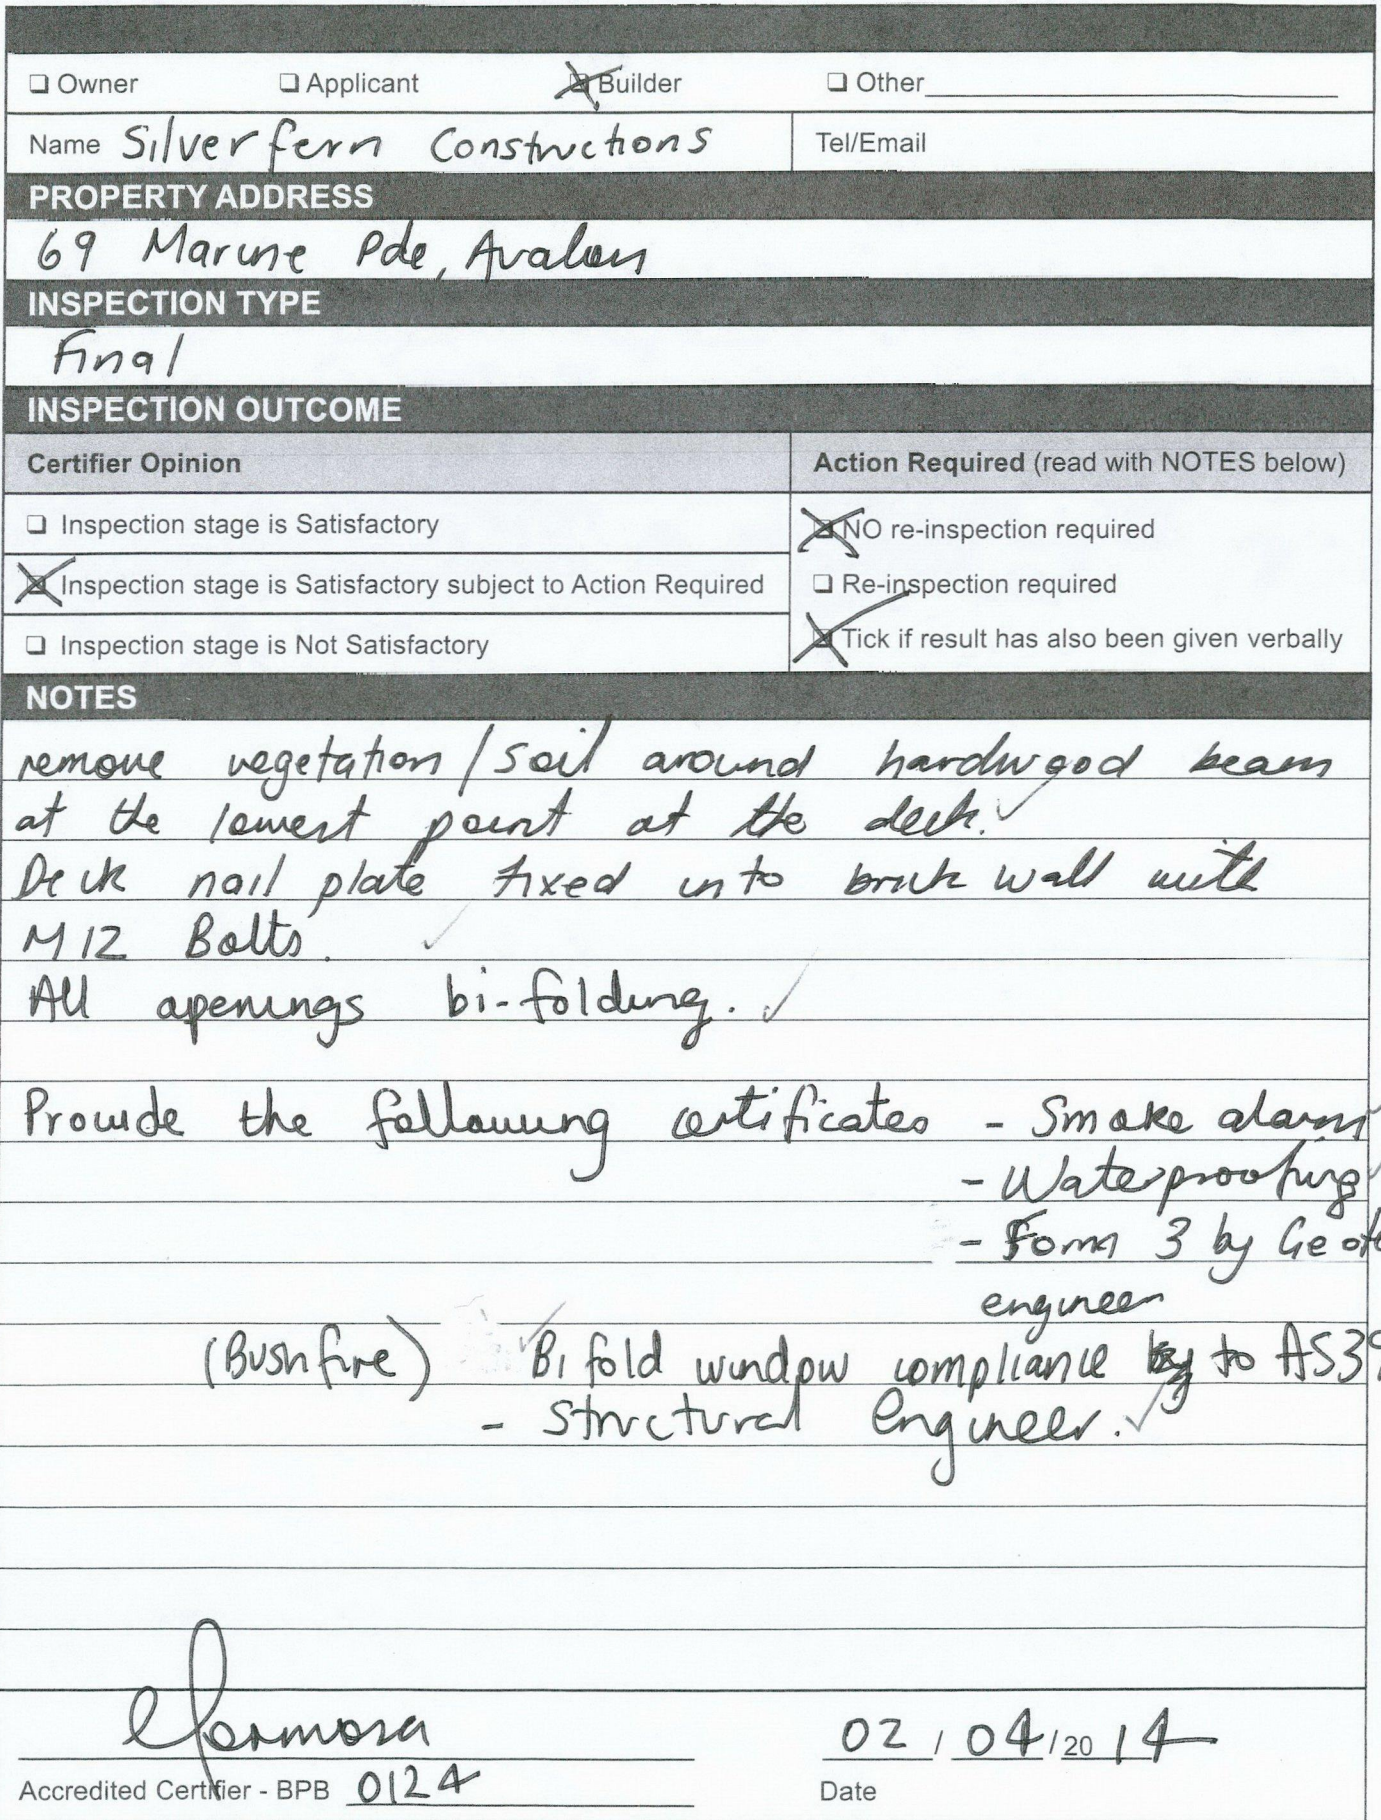 Owner Applicant Builder Other
Name Silverfern Constructions Tel/Email
PROPERTY ADDRESS
69 Marine Pde, Avalon
INSPECTION TYPE
Final
INSPECTION OUTCOME
Certifier Opinion Action Required (read with NOTES below)
Inspection stage is Satisfactory NO re-inspection required
Inspection stage is Satisfactory subject to Action Required Re-inspection required
Inspection stage is Not Satisfactory Tick if result has also been given verbally
NOTES
remove vegetation/soil around hardwood beam
at the lowest point at the deck.
Deck nail plate fixed into brick wall with
M12 Bolts.
All openings bi-folding.
Provide the following certificates - Smoke alarm
- Waterproofing
- Form 3 by Geot
engineer
(Bushfire) Bifold window compliance to AS39
- Structural Engineer.
02/04/2014
Accredited Certifier - BPB 0124 Date